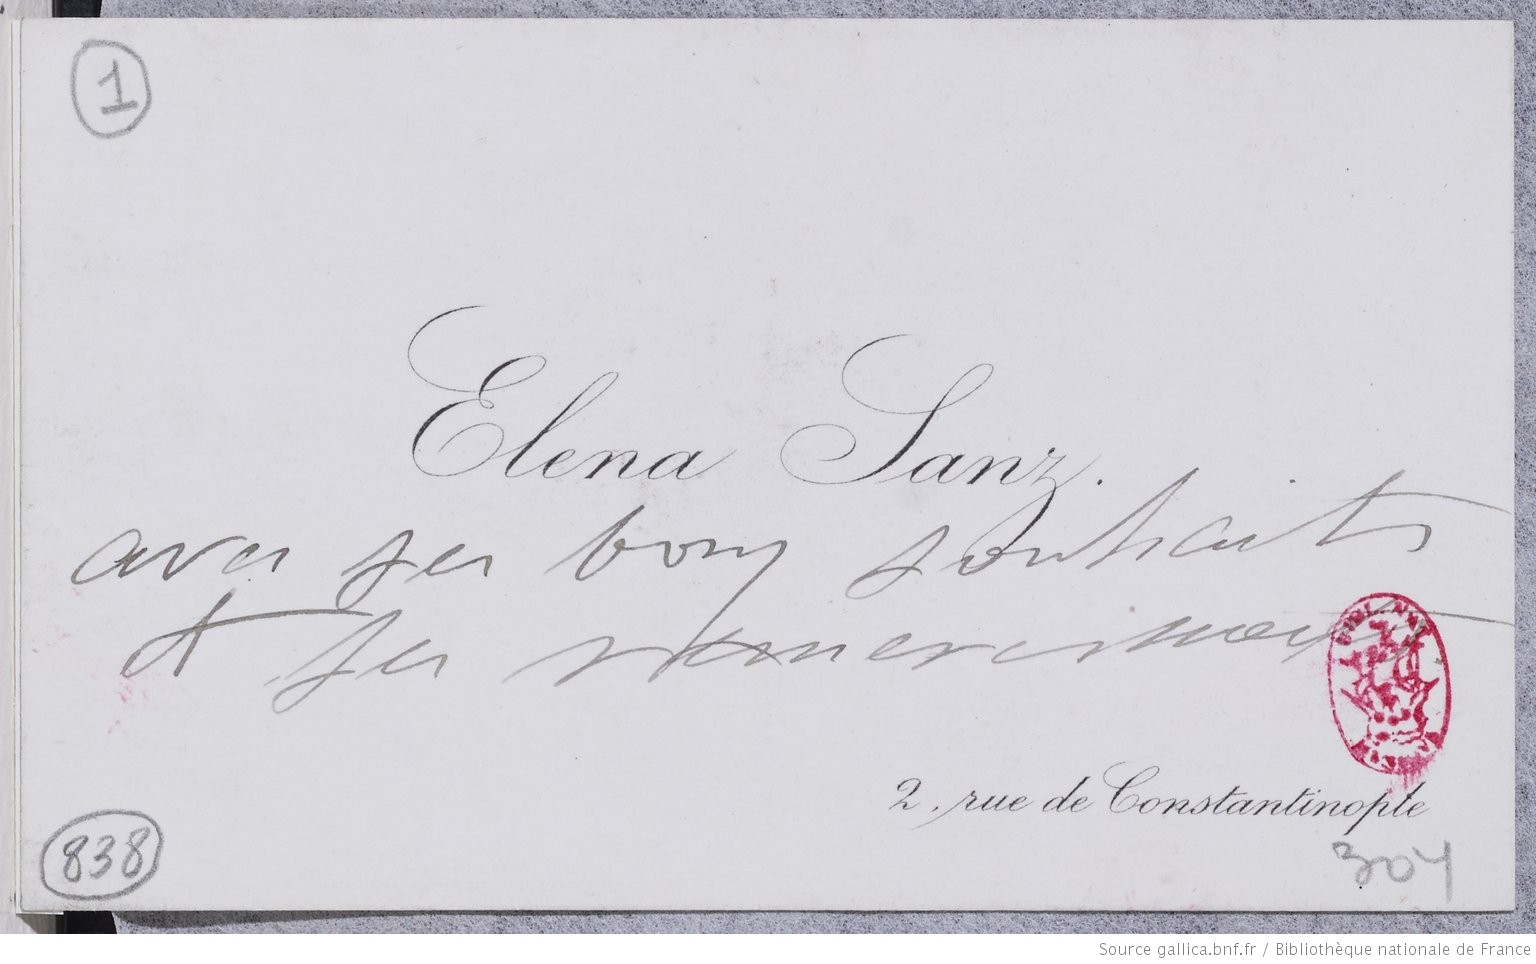 1
Elena Sanz.
avec ses bons souhaits
et ses remerciments
2, rue de Constantinople
838
304
Source gallica.bnf.fr / Bibliothèque nationale de France